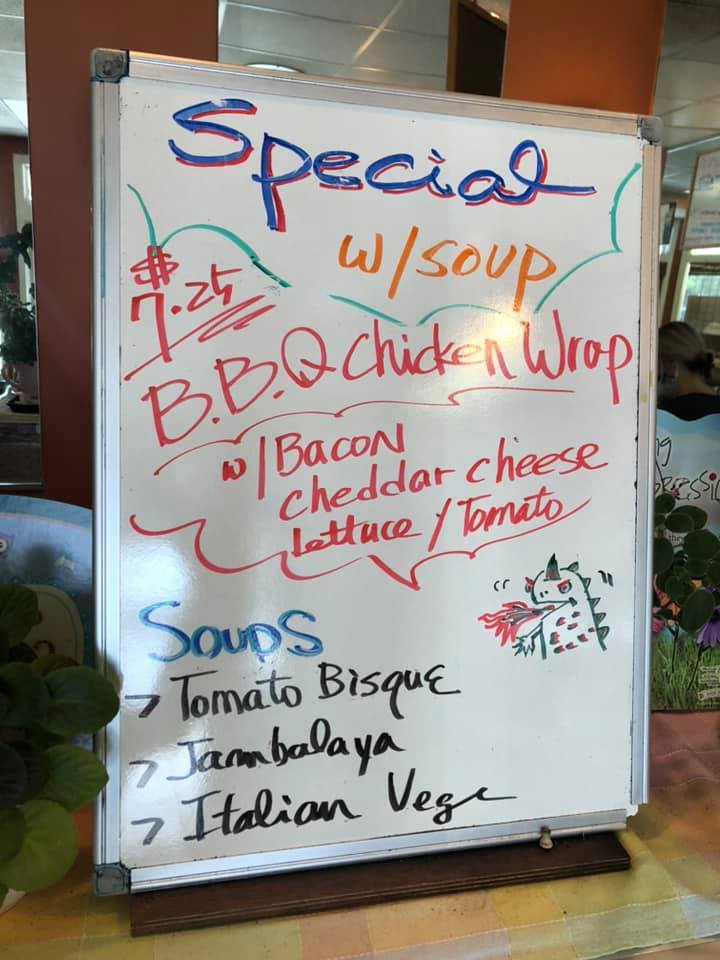 Special
w/soup
$7.25
B.B.Q Chicken Wrap
w/Bacon
cheddar cheese
lettuce/Tomato
Soups
> Tomato Bisque
> Jambalaya
> Italian Vege